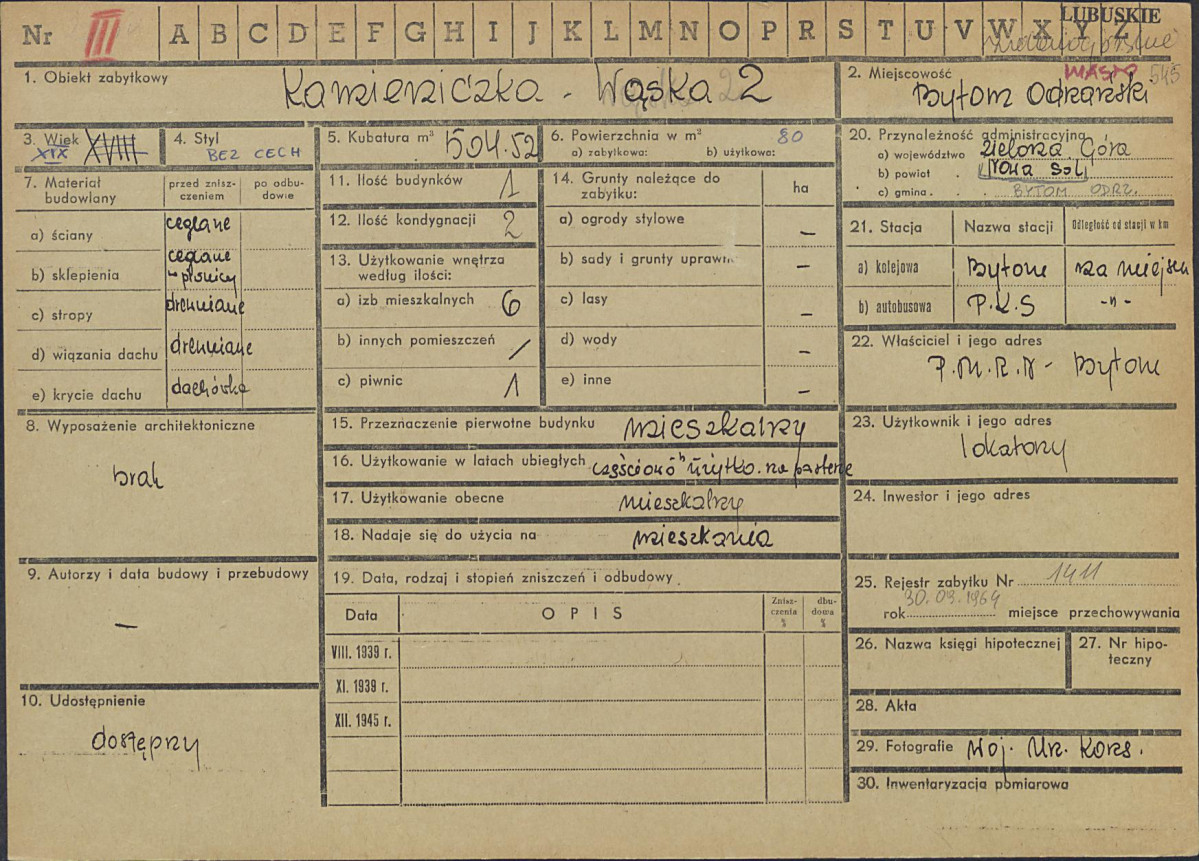 Nr III A B C D E F G H I J K L M N O P R S T U V W X Y Z LUBUSKIE
MIASTO 545
1. Obiekt zabytkowy
Kamieniczka - Wąska 2
2. Miejscowość
Bytom Odrzański
3. Wiek
XIX XVIII
4. Styl
BEZ CECH
5. Kubatura m³ 504.52
6. Powierzchnia w m² 80
a) zabytkowa: b) użytkowa:
7. Materiał budowlany
przed znisz-
czeniem
po odbu-
dowie
a) ściany ceglane
b) sklepienia ceglane
w piwnicy
c) stropy drewniane
d) wiązania dachu drewniane
e) krycie dachu dachówka
8. Wyposażenie architektoniczne
brak
9. Autorzy i data budowy i przebudowy
—
10. Udostępnienie
dostępny
11. Ilość budynków 1
12. Ilość kondygnacji 2
13. Użytkowanie wnętrza
według ilości:
a) izb mieszkalnych 6
b) innych pomieszczeń /
c) piwnic 1
14. Grunty należące do
zabytku:
ha
a) ogrody stylowe —
b) sady i grunty uprawn. —
c) lasy —
d) wody —
e) inne —
15. Przeznaczenie pierwotne budynku mieszkalny
16. Użytkowanie w latach ubiegłych częściowo użytko. na parterze
17. Użytkowanie obecne mieszkalny
18. Nadaje się do użycia na mieszkania
19. Data, rodzaj i stopień zniszczeń i odbudowy
Data
OPIS
Znisz-
czenia
%
dbu-
dowa
%
VIII. 1939 r.
XI. 1939 r.
XII. 1945 r.
20. Przynależność administracyjna
a) województwo Zielona Góra
b) powiat . Nowa Sol
c) gmina . . BYTOM ODRZ.
21. Stacja
Nazwa stacji
Odległość od stacji w km
a) kolejowa Bytom na miejscu
b) autobusowa P.K.S -"-
22. Właściciel i jego adres
P.M.R.N - Bytom
23. Użytkownik i jego adres
lokatorzy
24. Inwestor i jego adres
25. Rejestr zabytku Nr 1411
30.09.1964
rok miejsce przechowywania
26. Nazwa księgi hipotecznej
27. Nr hipo-
teczny
28. Akta
29. Fotografie Woj. Urz. Kons.
30. Inwentaryzacja pomiarowa